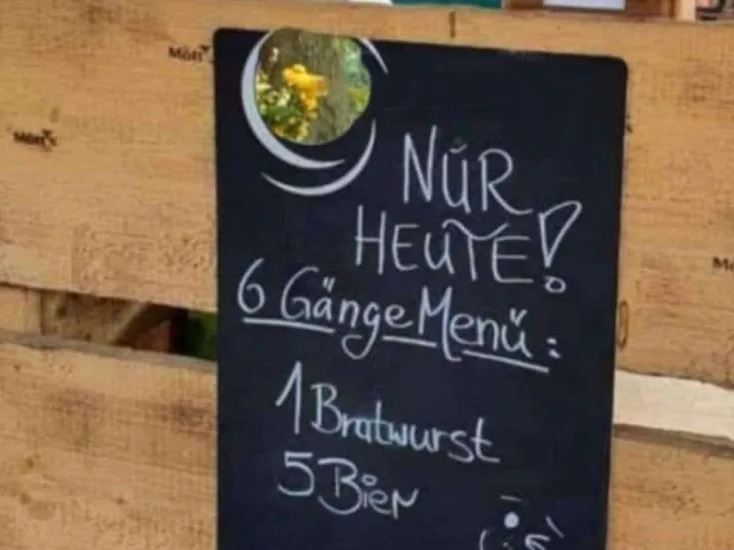 NUR
HEUTE!
6 Gänge Menü:
1 Bratwurst
5 Bier